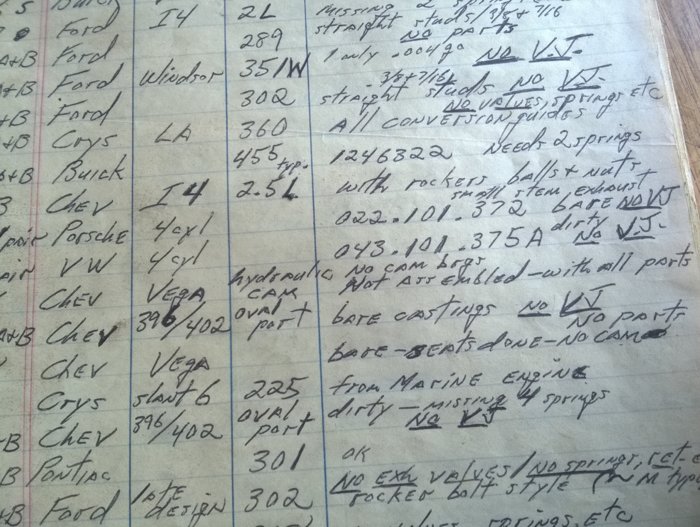 S Buick I4 2L missing 2
Ford 289 straight studs/3/8+7/16
NO parts
A+B Ford Windsor 351W 1 only .004/90 NO V.J.
3/8+7/16
A+B Ford 302 straight studs NO V.J.
NO valves, springs etc
A+B Crys LA 360 All conversion guides
A+B Buick 455 typ. 1246322 needs 2 springs
B Chev I4 2.5L with rockers balls + nuts
small stem exhaust
pair Porsche 4cyl 022.101.372 bare NO VJ
dirty
air VW 4cyl 043.101.375A NO V.J.
Chev Vega hydraulic cam NO cam brgs
Not assembled - with all parts
A+B Chev 396/402 oval port bare castings NO VJ
NO parts
Chev Vega bare - seats done - NO cam
Crys slant 6 225 from Marine Engine
-B Chev 396/402 oval port dirty - missing 4 springs
NO VJ
B Pontiac 301 OK
-B Ford late design 302 NO Exh valves/NO springs, ret
rocker bolt style
springs, etc